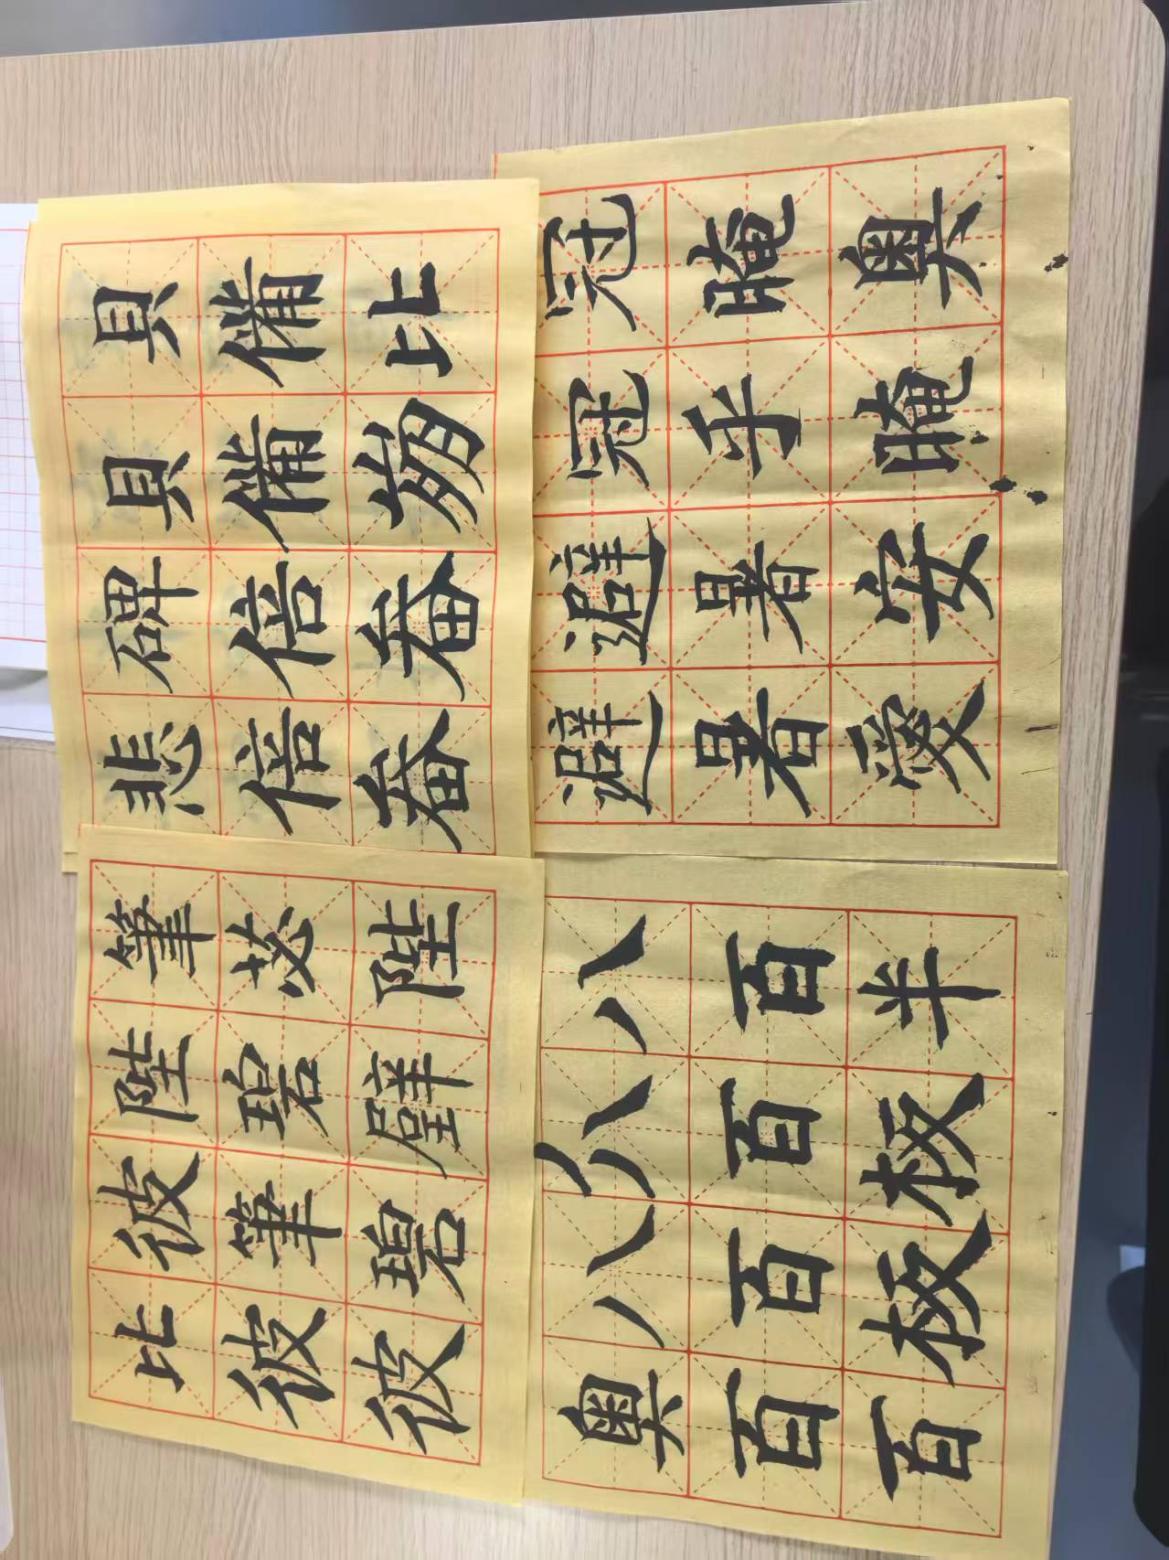 比彼陛筆
彼筆碧苾
彼碧壁陛
悲碑貝貝
倍倍備備
畚畚崩比
奧八八八
百百百百
百板板半
避避冠冠
暑暑乎晻
愛安晻奧